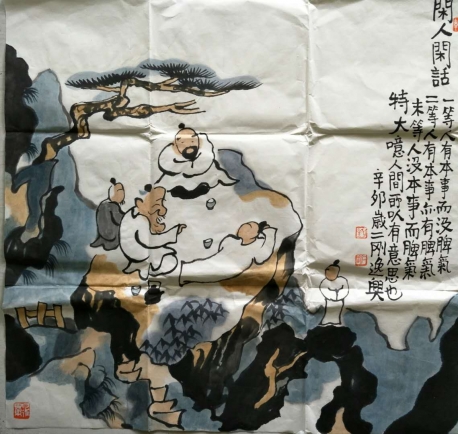 閑人閑話
一等人有本事而没脾氣
二等人有本事亦有脾氣
末等人没本事而脾氣
特大噫人間所以有意思也
辛卯歲一刚逸興